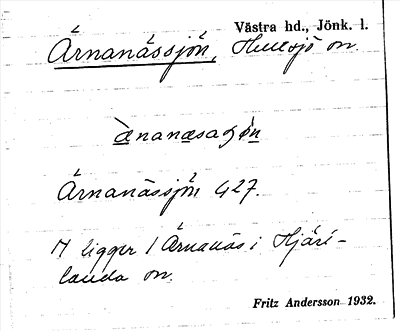 Västra hd., Jönk. l.
Årnanässjön, Hultsjö sn.
ànanæsaʃön
Årnanässjön 427.
Ligger i Årnanäs i Hjärt-
landa sn.
Fritz Andersson 1932.